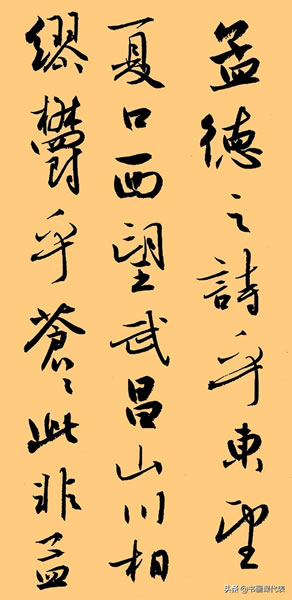 孟德之詩乎東望
夏口西望武昌山川相
繆欝乎蒼〻此非孟
头条 @书画代表